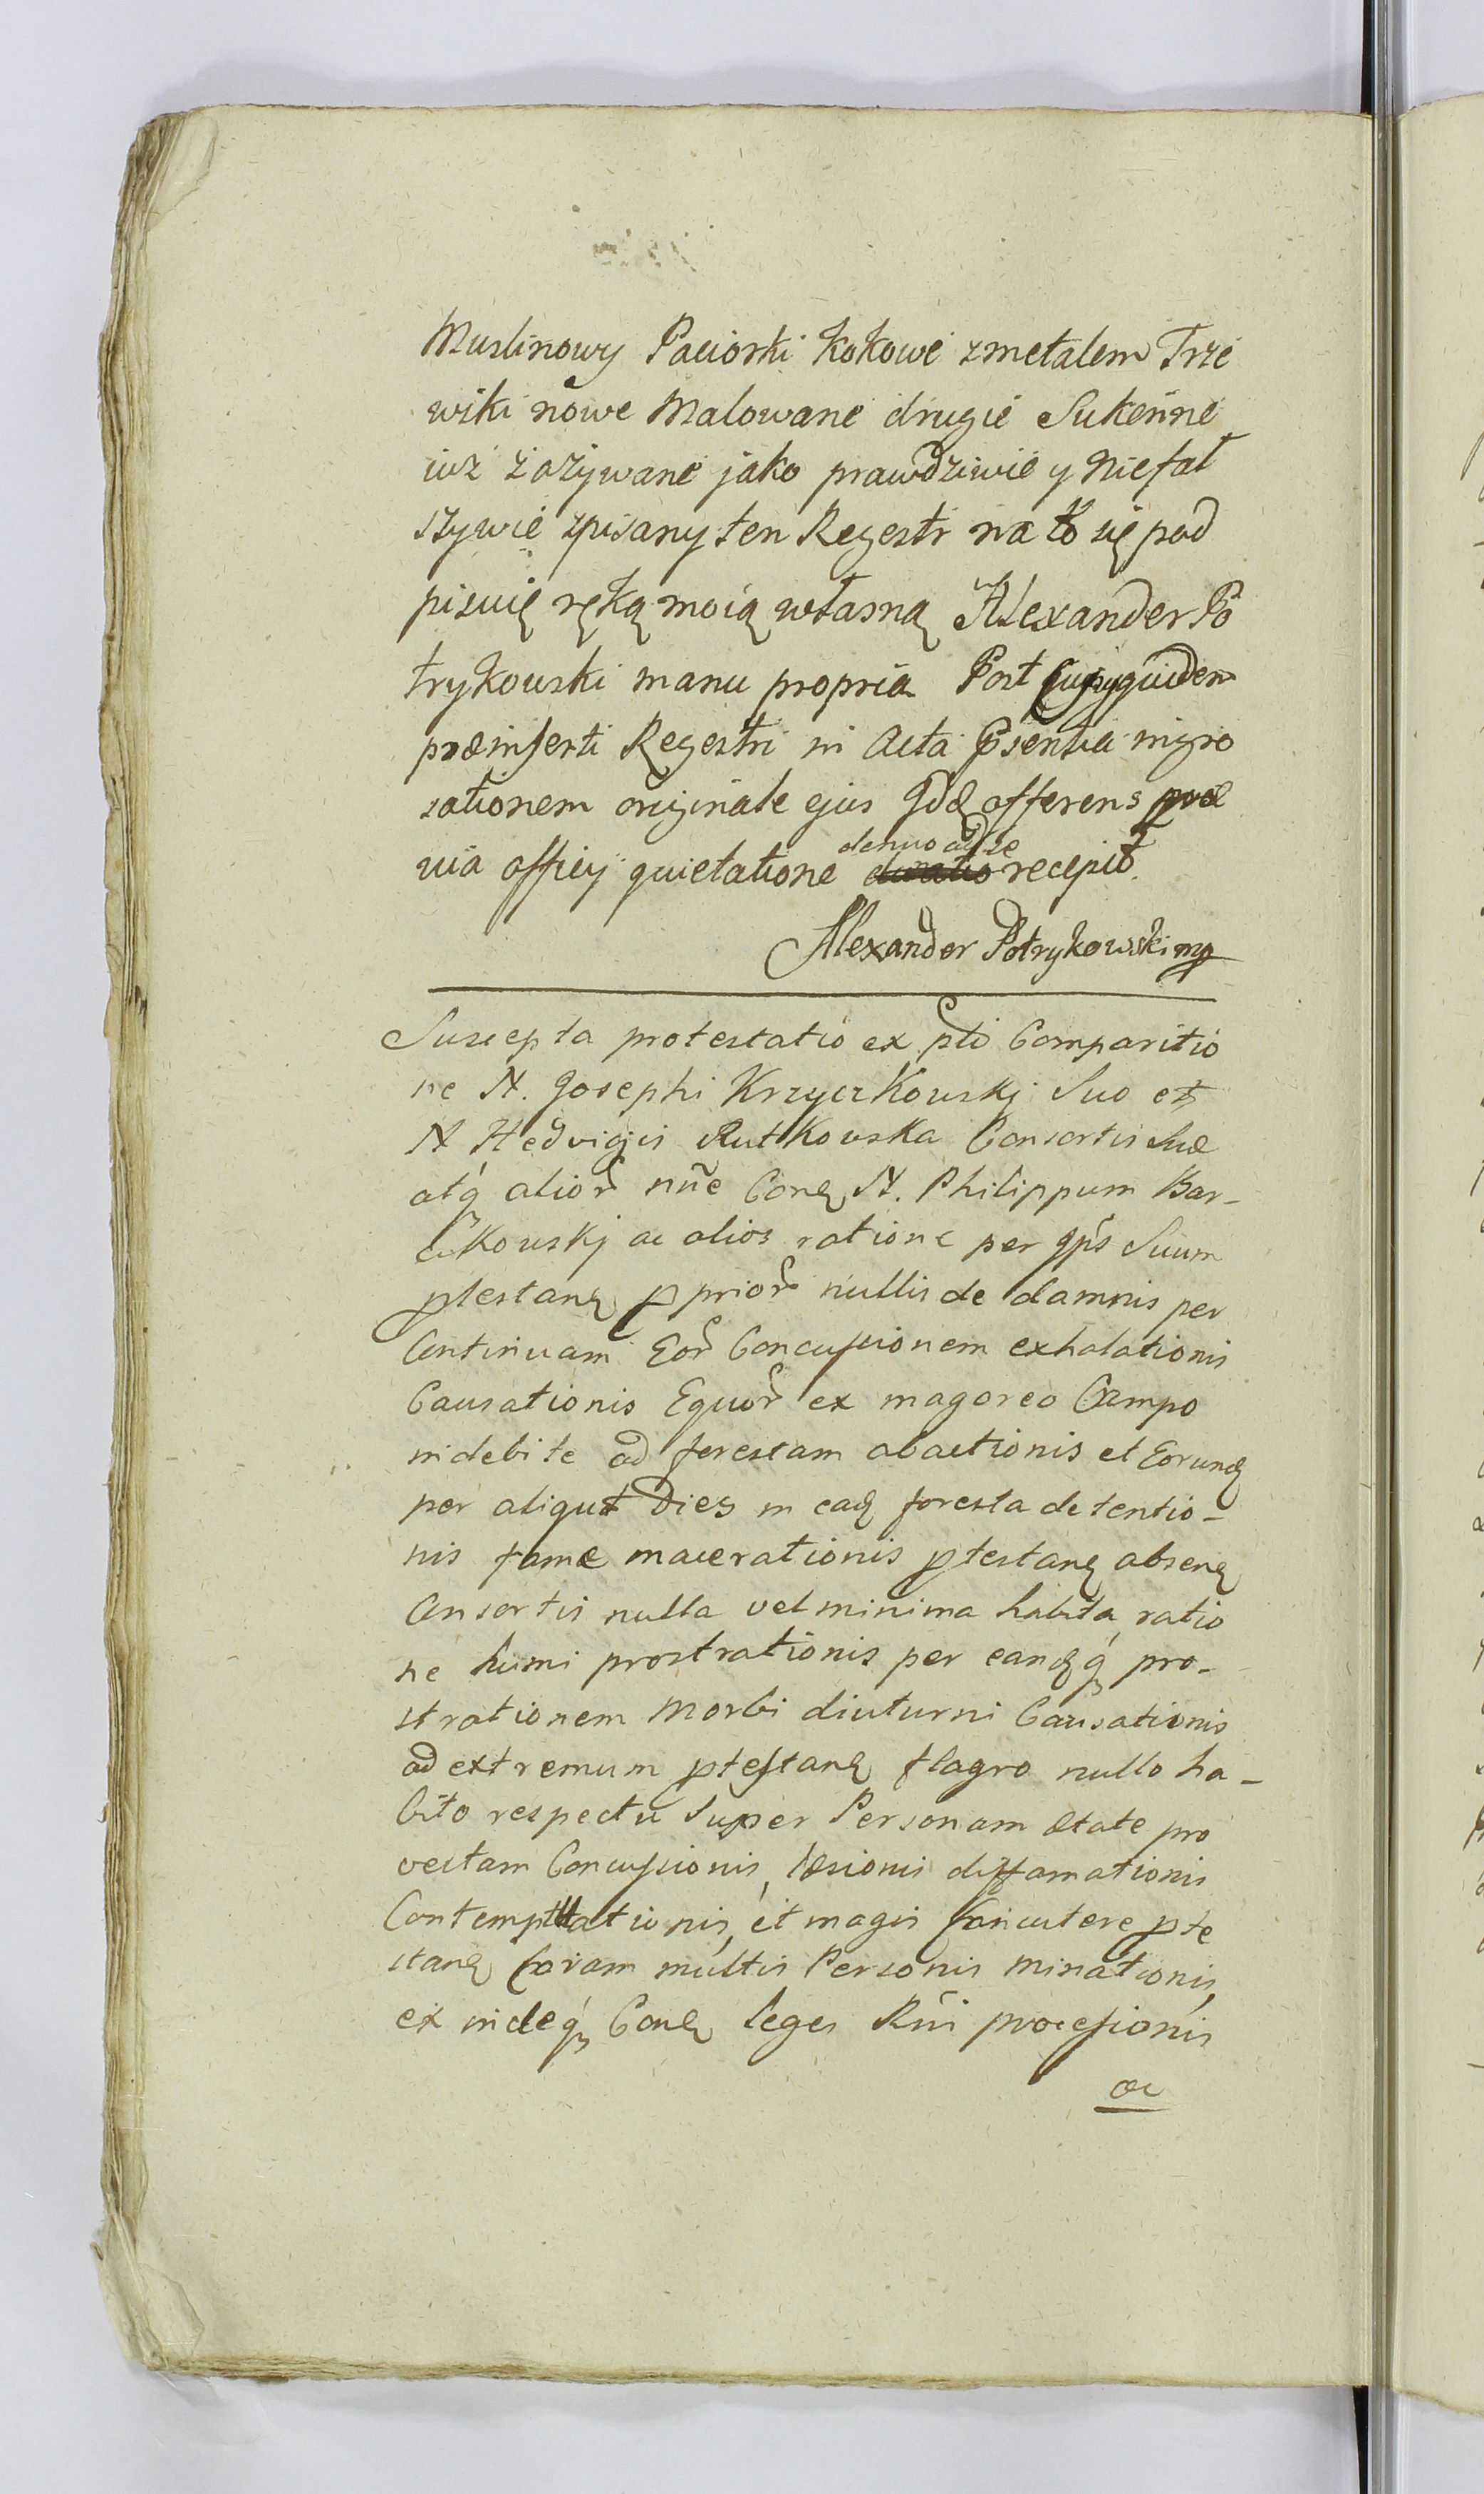 Muslinowy Paciorki kokowe z metalem Trze
wiki nowe Malowane drugie Sukenne
iuż zażywane jako prawdziwie y niefał
szywie zpisany ten Regestr na to się pod
pisuię ręką moią własną Alexander Po
trykowski manu propria Post cujusquidem
præinserti Regestri in Acta p̄sentia ingro
sationem originale ejus Idẽ offerens præ
via officij quietatione denuo ad se recepit.
Alexander Potrykowski mp
Suscepta protestatio ex p̄ti Comparitio
ne N. Josephi Krzyczkowskj Suo et
N Hedvigis Rutkowska Consortis Suæ
atq́ alior̃ nñe Con̨ N. Philippum Bar-
cikowskj ac alios ratione per ip̃s Suum
p̱testan̨ p prior̃ nullis de damnis per
Continuam Eor̃ Concussionem exhalationis
Causationis Equor̃ ex magoreo Campo
indebite ad forestam abactionis et Eorund̨
per aliquot Dies in ead̨ foresta detentio-
nis fame macerationis p̱testan̨ absen̨
Consortis nulla vel minima habita ratio
ne humi prostrationis per eand̨q́ pro-
strationem Morbi diuturni Causationis
ad extremum p̱testan̨ flagro nullo ha-
bito respectu Super Personam ætate pro
vectam Concussionis, læsionis diffamationis
Contemptationis, et magis Concutere p̱te
stan̨ Coram multis Personis minationis,
ex indeq́ Con̨ leges Rñi processionis
ac